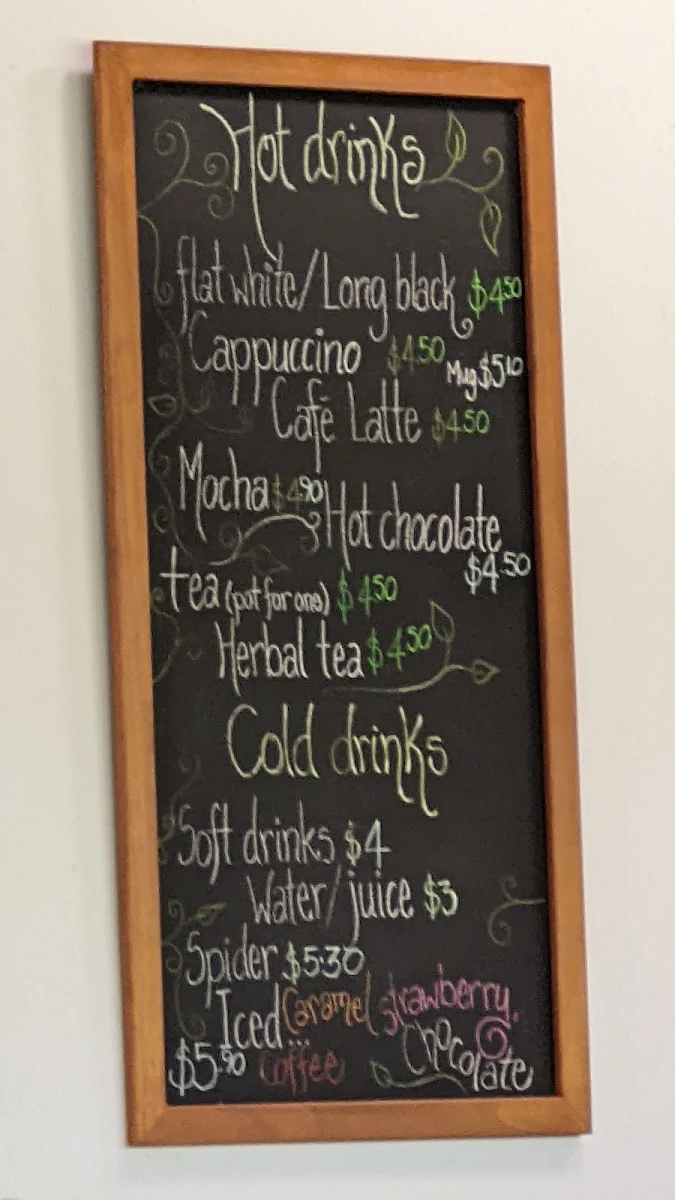 Hot drinks
flat white/Long black $4.50
Cappuccino $4.50 Mug $5.10
Café Latte $4.50
Mocha $4.90
Hot chocolate
$4.50
tea (pot for one) $4.50
Herbal tea $4.50
Cold drinks
Soft drinks $4
Water/juice $3
Spider $5.30
Iced... Caramel strawberry.
$5.90 Coffee Chocolate